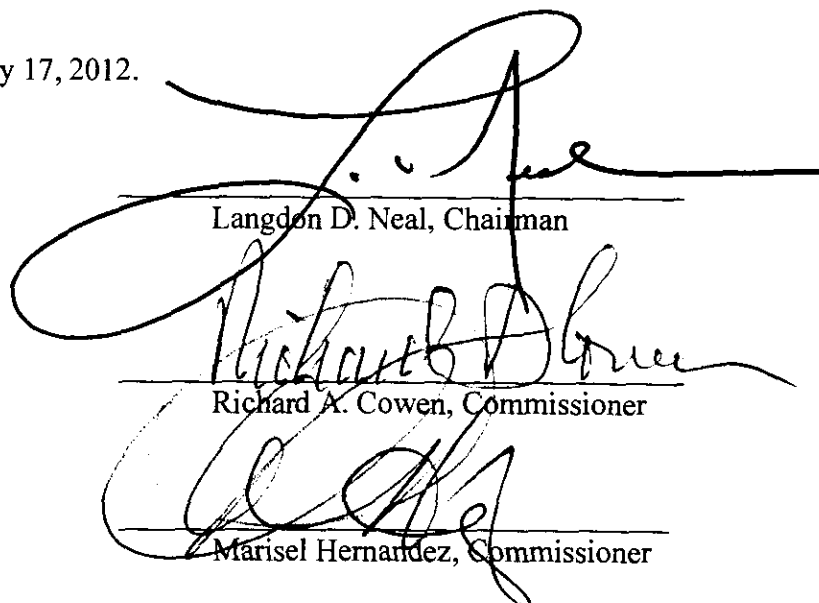 y 17, 2012.
Langdon D. Neal, Chairman
Richard A. Cowen, Commissioner
Marisel Hernandez, Commissioner